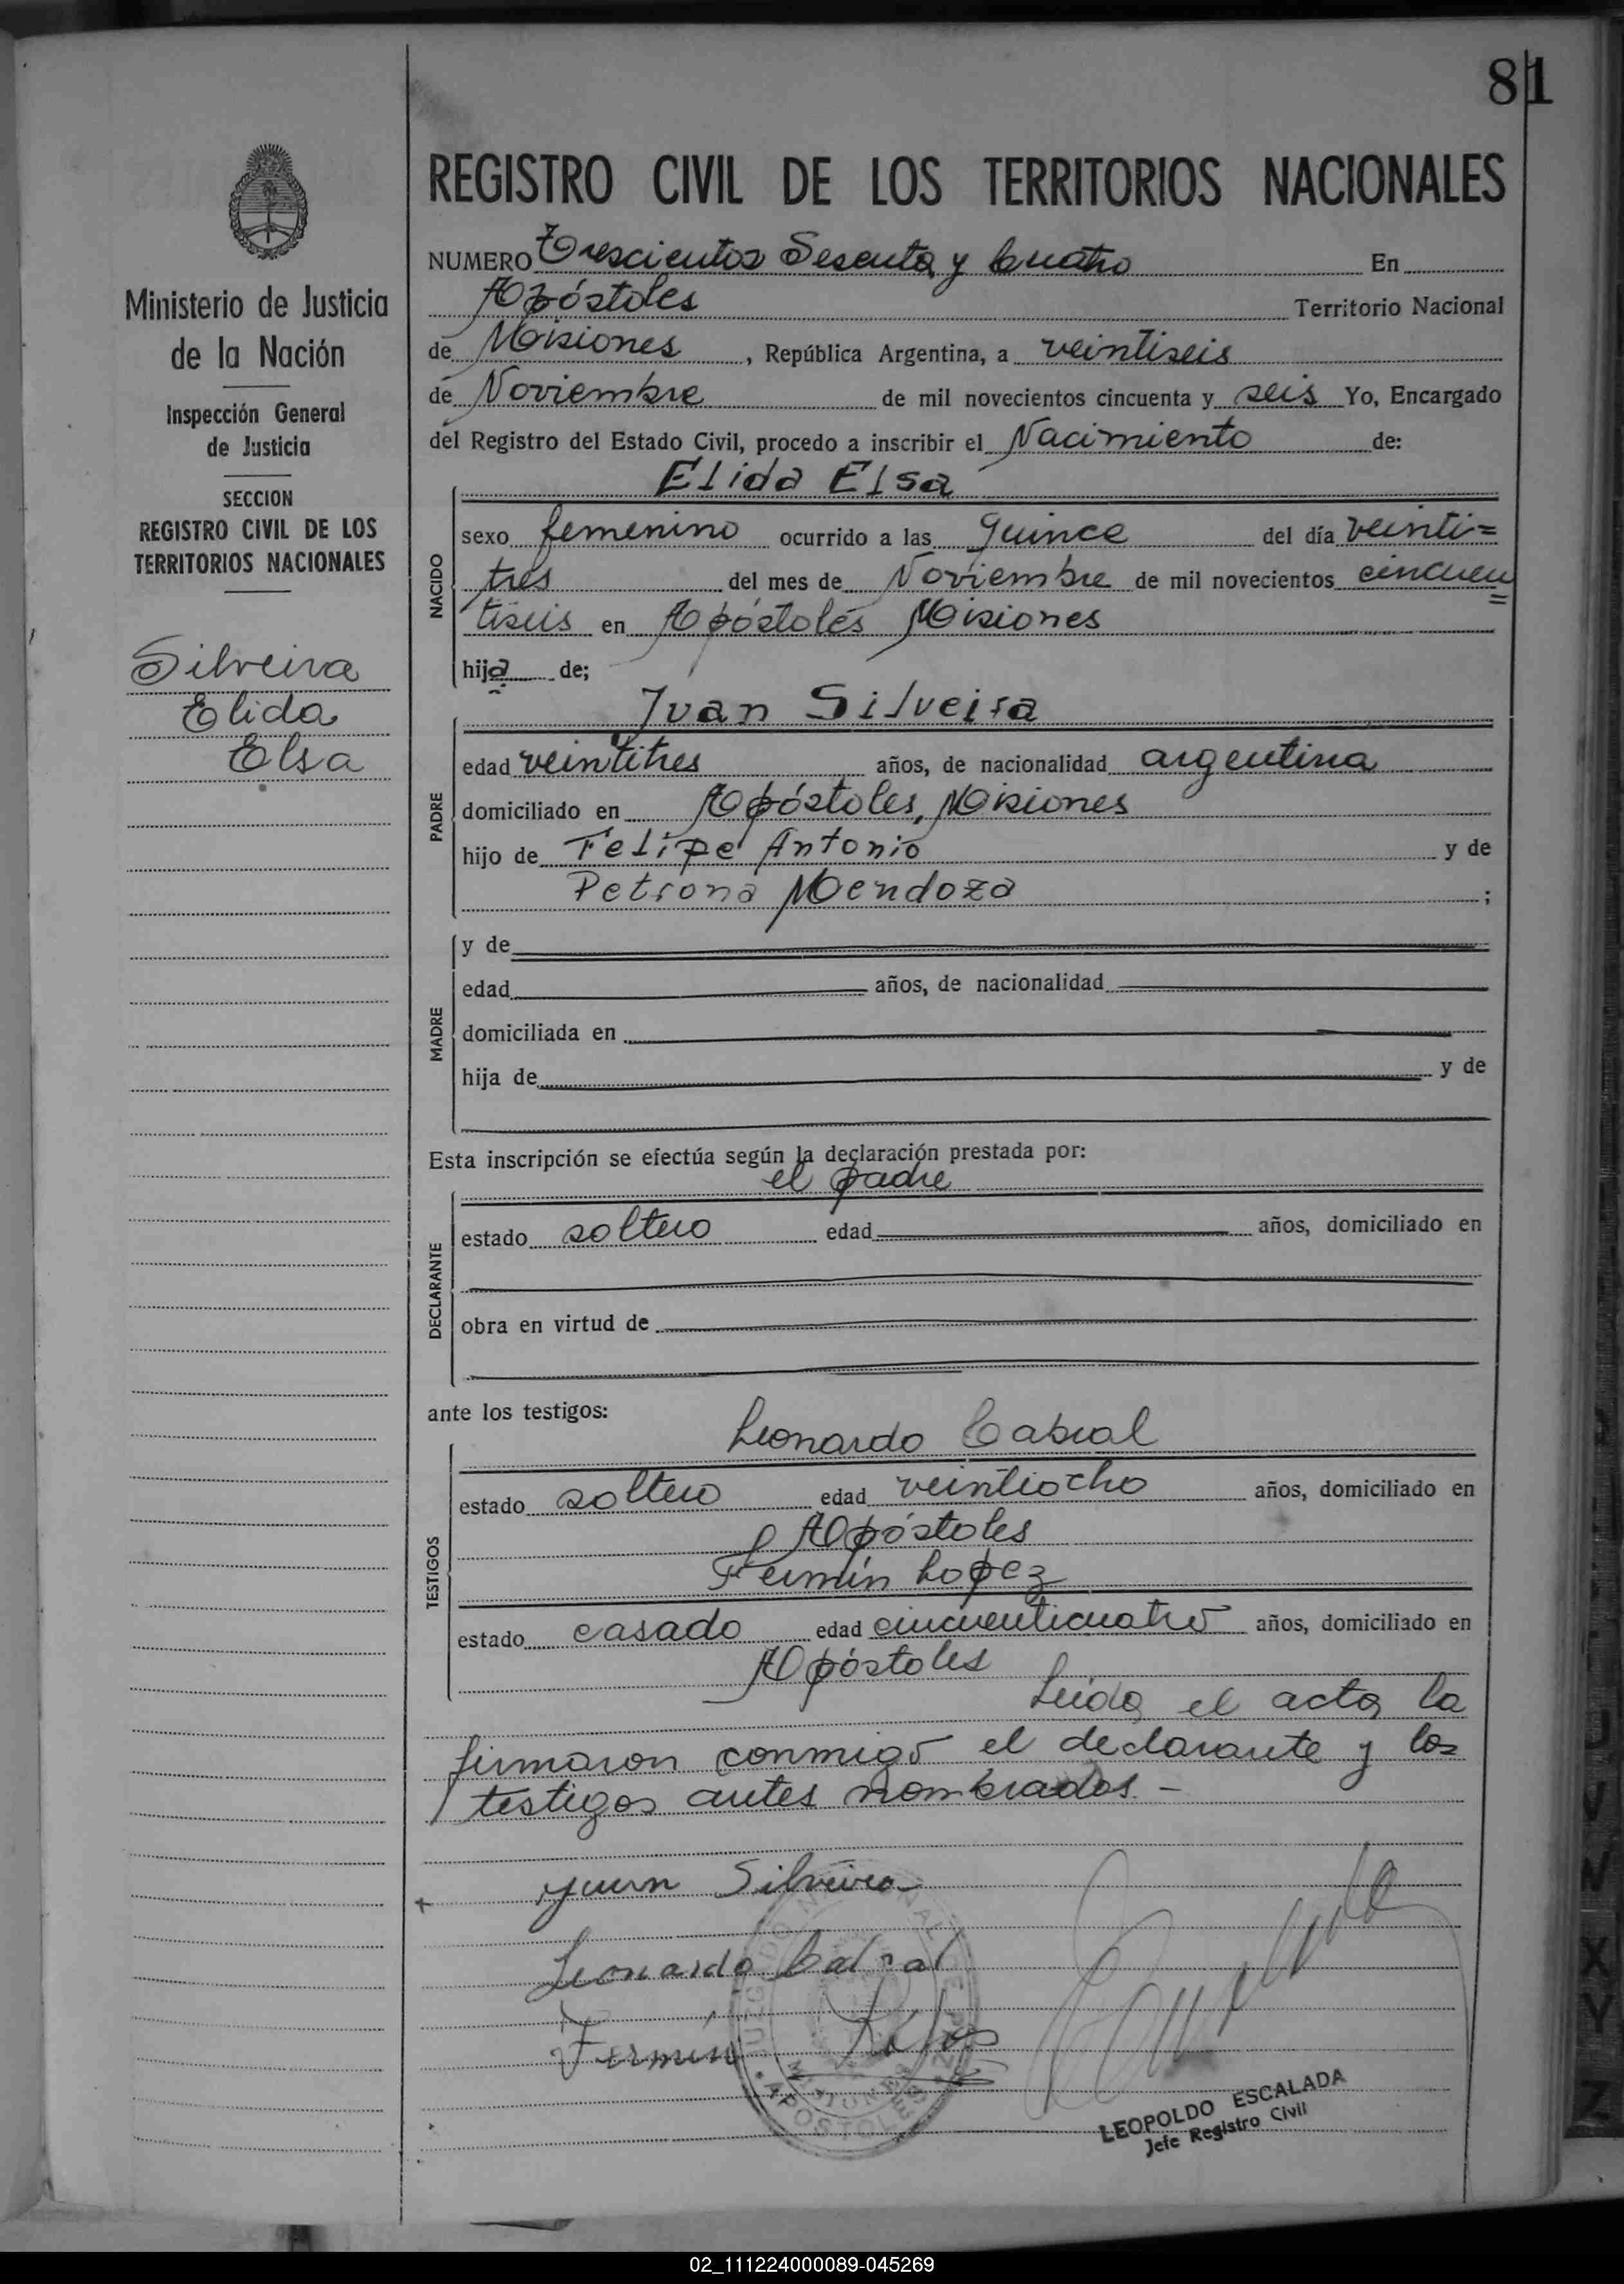 81
REGISTRO CIVIL DE LOS TERRITORIOS NACIONALES
Ministerio de Justicia
de la Nación
Inspección General
de Justicia
SECCION
REGISTRO CIVIL DE LOS
TERRITORIOS NACIONALES
Silveira
Elida
Elsa
NUMERO Trescientos Sesenta y Cuatro En
Apóstoles Territorio Nacional
de Misiones, República Argentina, a veintiseis
de Noviembre de mil novecientos cincuenta y seis Yo, Encargado
del Registro del Estado Civil, procedo a inscribir el Nacimiento de:
Elida Elsa
NACIDO
sexo femenino ocurrido a las quince del día veinti=
tres del mes de Noviembre de mil novecientos cincuen
=
tiseis en Apóstoles Misiones
hija de;
Juan Silveira
PADRE
edad veintitres años, de nacionalidad argentina
domiciliado en Apóstoles, Misiones
hijo de Felipe Antonio y de
Petrona Mendoza ;
MADRE
y de
edad años, de nacionalidad
domiciliada en
hija de y de
Esta inscripción se efectúa según la declaración prestada por:
el padre
DECLARANTE
estado soltero edad años, domiciliado en
obra en virtud de
ante los testigos:
Leonardo Cabral
TESTIGOS
estado soltero edad veintiocho años, domiciliado en
Apóstoles
Fermín Lopez
estado casado edad cincuenticuatro años, domiciliado en
Apóstoles
Leida el acta la
firmaron conmigo el declarante y los
testigos antes nombrados. -
Juan Silveira
Leonardo Cabral
Fermin
MISIONES
APOSTOLES
LEOPOLDO ESCALADA
Jefe Registro Civil
02_111224000089-045269